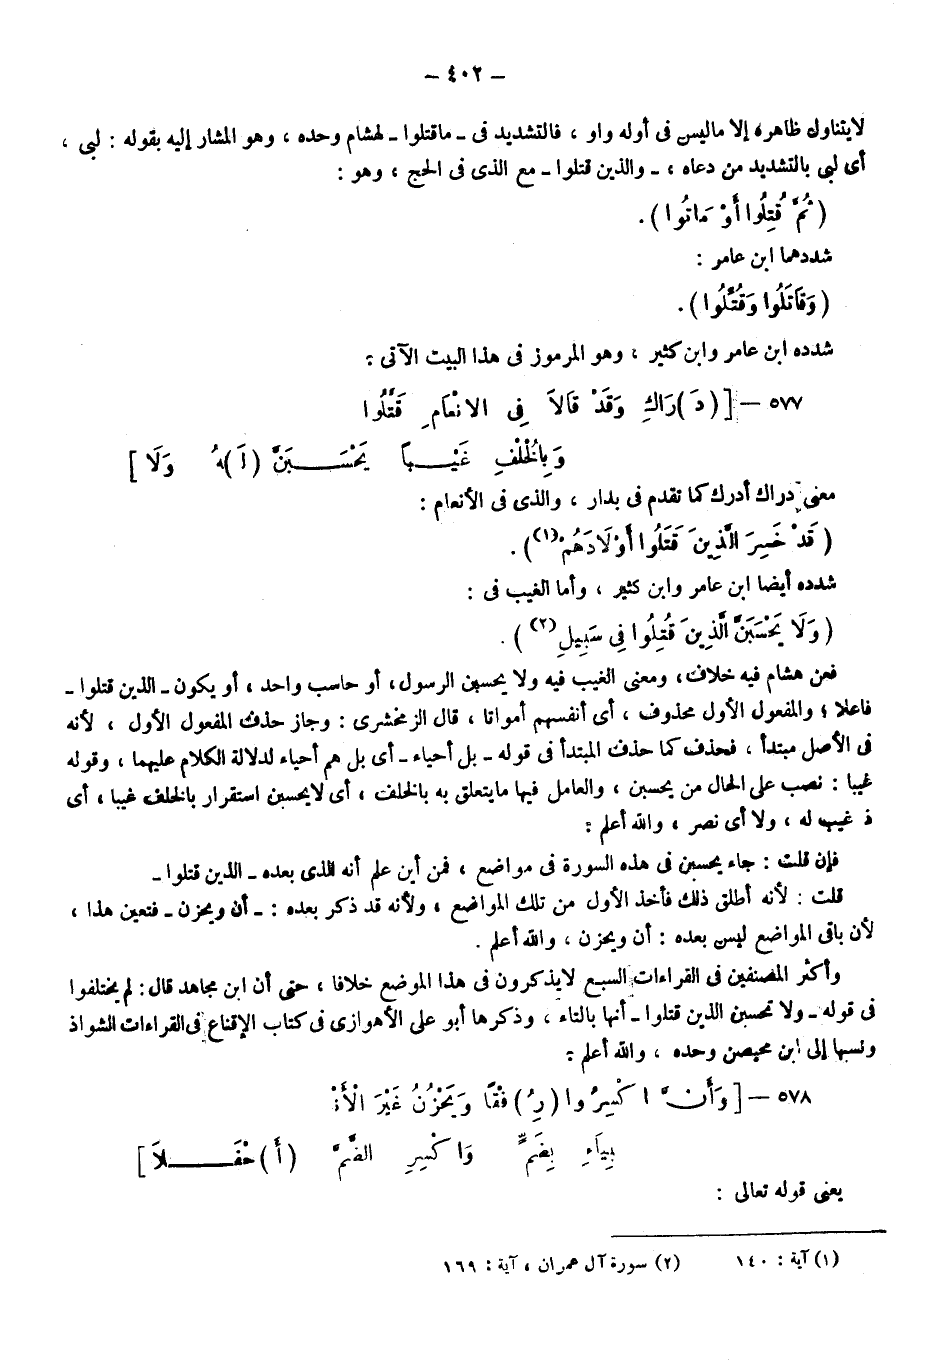 – ٤٠٢ –
لايتناول ظاهره إلا ماليس فى أوله واو ، فالتشديد فى ـ ماقتلوا ـ لهشام وحده ، وهو المشار إليه بقوله : لبى ،
أى لبى بالتشديد من دعاه ، ـ والذين قتلوا ـ مع الذى فى الحج ، وهو :
( ثُمَّ قُتِلُوا أَوْ مَاتُوا ) .
شددهما ابن عامر :
( وَقَاتَلُوا وَقُتِّلُوا ) .
شدده ابن عامر وابن كثير ، وهو المرموز فى هذا البيت الآتى :
٥٧٧ – [ ( دَ ) رَاكِ وَقَدْ قَالاَ فِى الانْعَامِ قَتَّلُوا
وَبِالْخُلْفِ غَيْبـاً يَحْسَبَنَّ ( لَـ ) ـهُ وَلَا ]
معنى دراك أدرك كما تقدم فى بدار ، والذى فى الأنعام :
( قَدْ خَسِرَ الَّذِينَ قَتَلُوا أَوْلَادَهُمْ (١) ) .
شدده أيضا ابن عامر وابن كثير ، وأما الغيب فى :
( وَلَا يَحْسَبَنَّ الَّذِينَ قُتِلُوا فِى سَبِيلِ (٢) ) .
فعن هشام فيه خلاف ، ومعنى الغيب فيه ولا يحسبن الرسول ، أو حاسب واحد ، أو يكون ـ الذين قتلوا ـ
فاعلا ؛ والمفعول الأول محذوف ، أى أنفسهم أمواتا ، قال الزمخشرى : وجاز حذف المفعول الأول ، لأنه
فى الأصل مبتدأ ، فحذف كما حذف المبتدأ فى قوله ـ بل أحياء ـ أى بل هم أحياء لدلالة الكلام عليهما ، وقوله
غيبا : نصب على الحال من يحسبن ، والعامل فيها مايتعلق به بالخلف ، أى لايحسبن استقرار بالخلف غيبا ، أى
ذ غيب له ، ولا أى نصر ، والله أعلم :
فإن قلت : جاء يحسبن فى هذه السورة فى مواضع ، فمن أين علم أنه الذى بعده ـ الذين قتلوا ـ
قلت : لأنه أطلق ذلك فأخذ الأول من تلك المواضع ، ولأنه قد ذكر بعده : ـ أن ويحزن ـ فتعين هذا ،
لأن باقى المواضع ليس بعده : أن ويحزن ، والله أعلم .
وأكثر المصنفين فى القراءات السبع لايذكرون فى هذا الموضع خلافا ، حتى أن ابن مجاهد قال : لم يختلفوا
فى قوله ـ ولا تحسبن الذين قتلوا ـ أنها بالتاء ، وذكرها أبو على الأهوازى فى كتاب الإقناع فى القراءات الشواذ
ونسبها إلى ابن محيصن وحده ، والله أعلم :
٥٧٨ – [ وَأَنَّ اكْسِرُوا ( رِ ) فْقًا وَيَحْزُنُ غَيْرَ الْأَنْـ
بِيَاءِ بِضَمٍّ وَاكْسِرِ الضَّمَّ ( أَ ) حْفَـلاَ ]
يعنى قوله تعالى :
(١) آية : ١٤٠ (٢) سورة آل عمران ، آية : ١٦٩